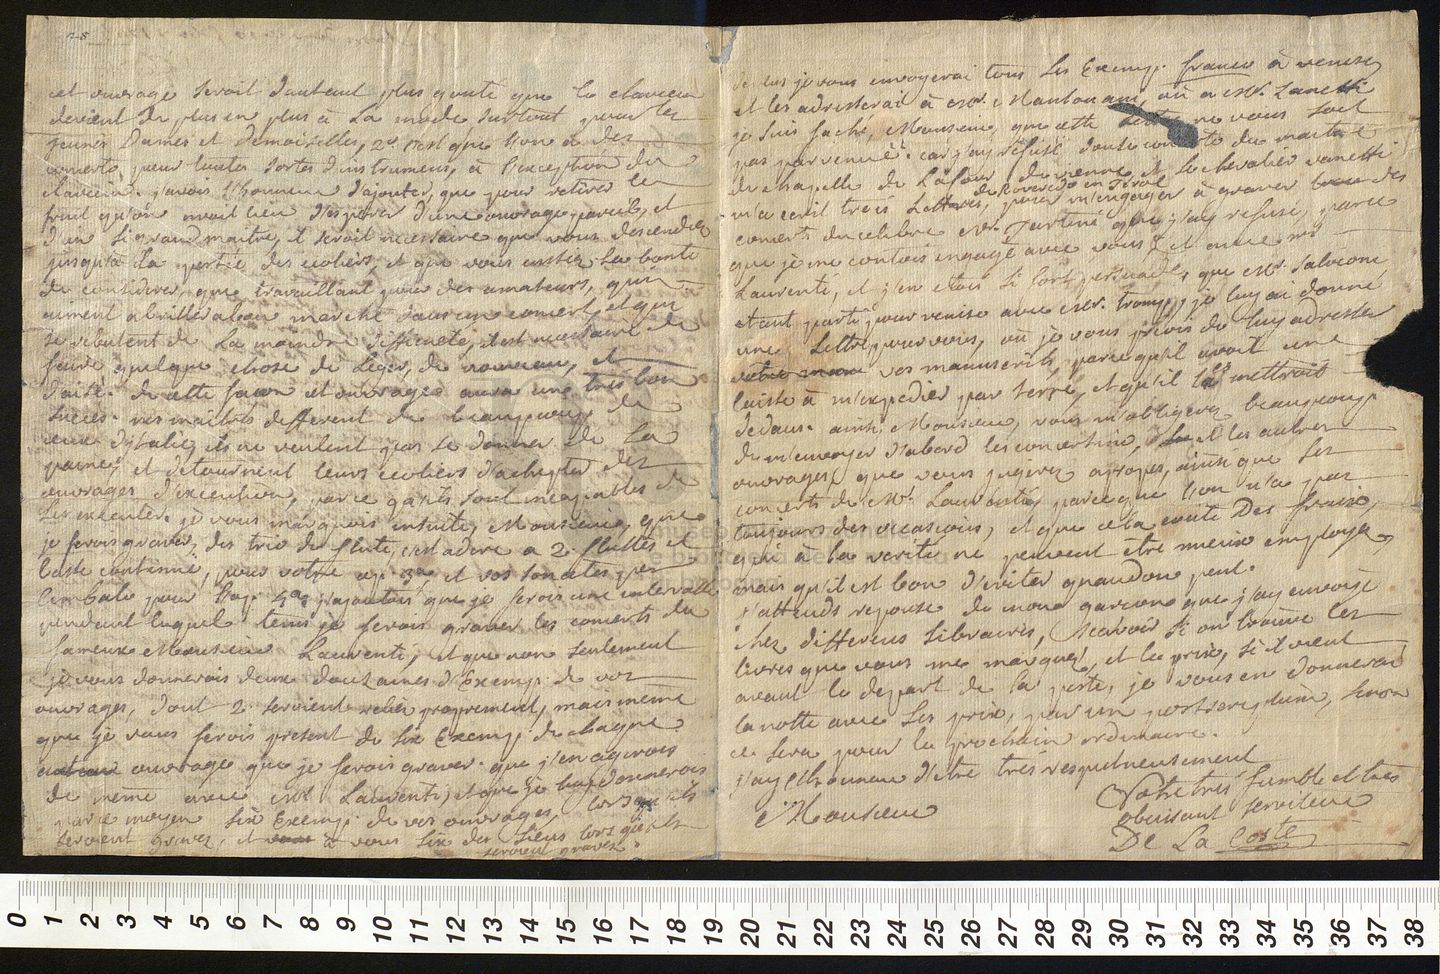 cet ouvrage seroit d'autant plus gouté que le clavecin
devient de plus en plus à la mode surtout pour les
jeunes Dames et demoiselles, 2º c'est que l'on a des
concerts pour toutes sortes d'instrumens, à l'exception du
clavecin. j'avois l'honneur d'ajouter, que pour retirer le
fruit qu'on avoit lieu d'esperer d'une ouvrage pareil, et
d'un si grand maitre, il seroit necessaire que vous descendiez
jusqu'à la portée des ecoliers, et que vous eussiez la bonté
de considerer, que travaillant pour des amateurs, qui
aiment à briller à bon marché dans un concert, et qui
se rebutent de la moindre difficulté, il est necessaire de
faire quelque chose de leger, de nouveau, et
d'aisé. de cette façon cet ouvrage aura une tres bon
succès. nos maitres different de beaucoup de
ceux d'Italie, ils ne veulent pas se donner de la
peine, et detournent leurs ecoliers d'acheter des
ouvrages d'execution, parce qu'ils sont incapables de
les executer. je vous marquois ensuite, Monsieur, que
je ferois graver, des trio de flute, c'est a dire a 2. fluttes et
basse continue, pour votre op. 3a et vos sonates per
Cimbalo pour l'op. 4a j'ajoutois que je ferois une intervalle
pendant lequel tems je ferois graver les concerts du
fameux Monsieur Laurenti, et que non seulement
je vous donnerois deux douzaines d'Exemp. de vos
ouvrages, dont 2. seroient reliés proprement, mais meme
que je vous ferois present de six Exemp. de chaque
ouvrage que je ferois graver. que j'en agirois
de même avec Mr. Laurenti, et que je luy donnerois
par ce moyen six Exemp. de vos ouvrages, lorsqu'ils
seroient gravez, et a vous six des siens lors qu'ils
seroient gravez.
de cas je vous envoyerai tous les Exemp. franco à venise
et les adresserai à Mr. Mantouani, ou a Mr. Zanetti
je suis faché, Monsieur, que cette ne vous soit
pas parvenue. car j'ay refusé douze concerts du maitre
de chapelle de la Cour de vienne, Mr. le chevalier vanetti
de Roveredo en Tirol
m'a ecrit trois Lettres, pour m'engager à graver des
concerts du celebre Mr. Tartini que j'ay refusé, parce
que je me contois engagé avec vous, et avec Mr
Laurenti, et j'en etois si fort persuadé, que Mr. Salvioni
etant parti pour venise avec Mr. tromp, je luy ai donné
une Lettre pour vous, où je vous priois de luy adresser
vos manuscrits, parce qu'il avoit une
caisse à m'expedier par terre, et qu'il les mettroit
dedans. ainsi, Monsieur, vous m'obligerez beaucoup
de m'envoyer d'abord les concertini, et les autres
ouvrages, que vous jugerez apropos, ainsi que les
concerts de Mr. Laurenti, parce que l'on n'a pas
toujours des occasions, et que cela coute Des fraix,
qui à la verité ne peuvent être mieux employés,
mais qu'il est bon d'eviter quand on peut.
j'attends reponse de mon garçon que j'ay envoyé
chez differens libraires, scavoir si on trouve les
livres que vous me marquez, et le prix, s'il vient
avant le depart de la poste, je vous en donnerai
la notte avec les prix, par un postscriptum, sinon
ce sera pour le prochain ordinaire.
j'ay l'honneur d'etre tres respectueusement
Monsieur
Votre tres humble et tres
obeissant serviteur
De La Coste
0 1 2 3 4 5 6 7 8 9 10 11 12 13 14 15 16 17 18 19 20 21 22 23 24 25 26 27 28 29 30 31 32 33 34 35 36 37 38